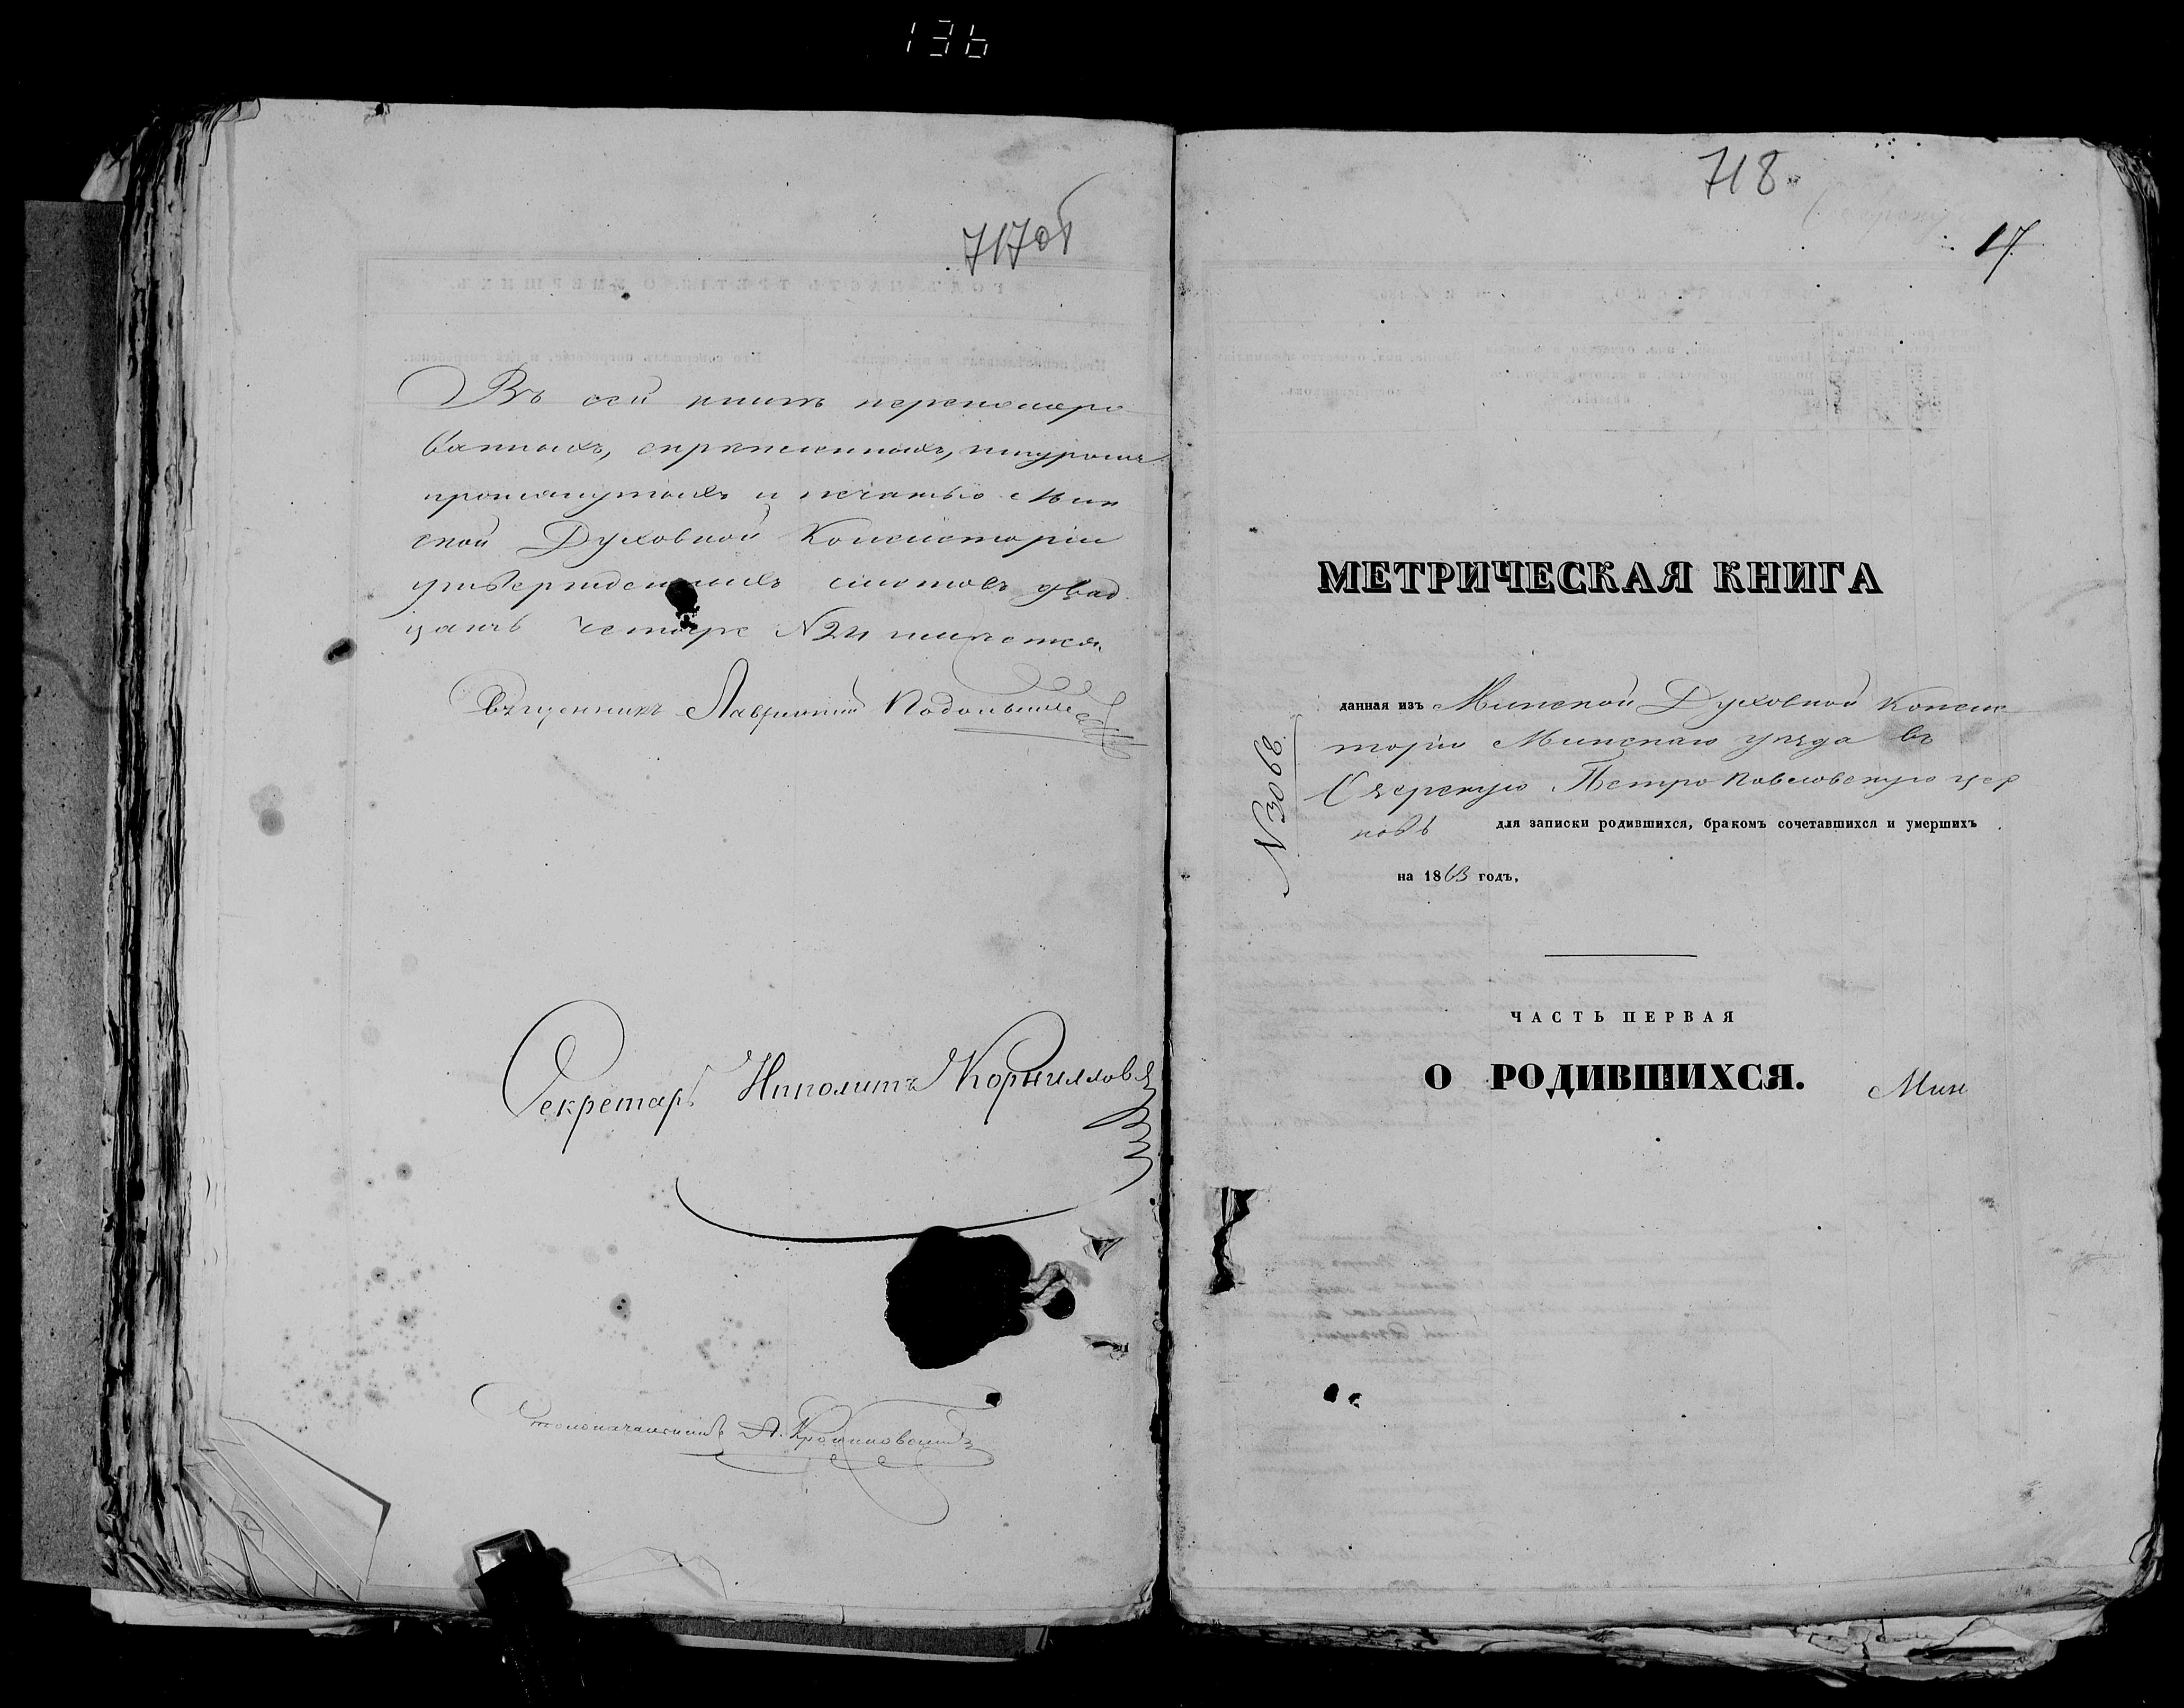 136
717об
Въ сей книгѣ перенумеро
ванныхъ, скрѣпленныхъ, шнуромъ
прошнутыхъ и печатью Мин
ской Духовной Консисторіи
утвержденныхъ листовъ двад
цать четыре №24 имѣется.
Священникъ Лаврентій Подольскій
Секретарь Ипполитъ Корниловъ
Столоначальникъ А.
718
17
МЕТРИЧЕСКАЯ КНИГА
данная изъ Минской Духовной Консис
торіи Минскаго уѣзда въ
Петро Павловскую цер
ковь для записки родившихся, бракомъ сочетавшихся и умершихъ
на 1863 годъ,
ЧАСТЬ ПЕРВАЯ
О РОДИВШИХСЯ. Мин